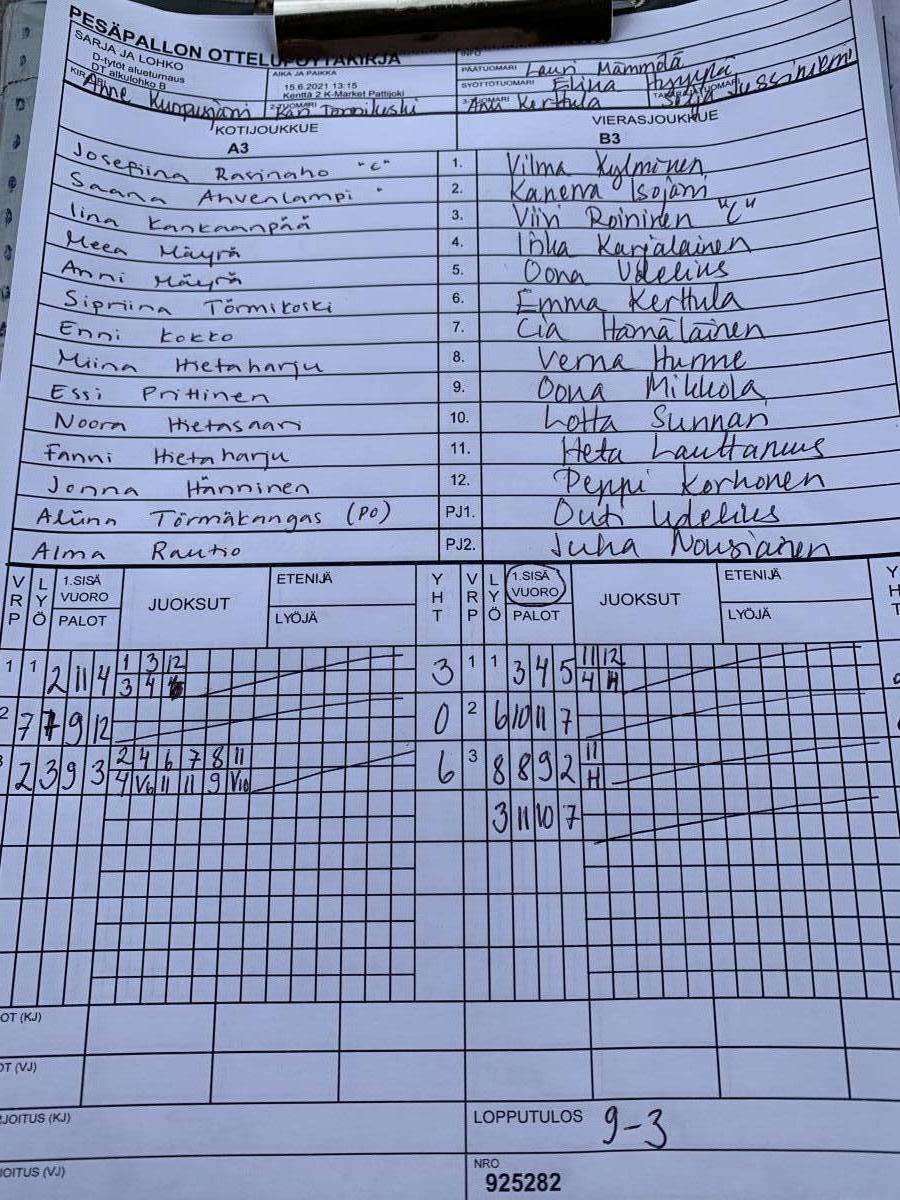 PESÄPALLON OTTELUPÖYTÄKIRJA
SARJA JA LOHKO
D-tytöt alueturnaus
DT alkulohko B
AIKA JA PAIKKA
15.6.2021 13:15
Kenttä 2 K-Market Pattijoki
INFO
PÄÄTUOMARI Lauri Mämmelä
SYÖTTÖTUOMARI Elina
KIRJURI Anne
2-TUOMARI Kari
3-TUOMARI Anu Kerttula
TAKARAJATUOMARI Seija Jussiniemi
KOTIJOUKKUE VIERASJOUKKUE
A3 B3
Josefiina Rasinaho "C" 1. Vilma Kylminen
Saana Ahvenlampi 2. Kanerva Isojärvi
Iina Kankaanpää 3. Viivi Roininen "C"
Meea Mäyrä 4. Inka Karjalainen
Anni Mäyrä 5. Oona Udelius
Sipriina Törmikoski 6. Emma Kerttula
Enni Kokko 7. Cia Hämäläinen
Miina Hietaharju 8. Verna Hurme
Essi Prittinen 9. Oona Mikkola
Noora Hietasaari 10. Lotta Sunnari
Fanni Hietaharju 11. Heta Lauttamus
Jonna Hänninen 12. Peppi Korhonen
Aliina Törmäkangas (PO) PJ1. Outi Udelius
Alma Rautio PJ2. Juha Nousiainen
VRP LYÖ 1.SISÄ VUORO PALOT JUOKSUT ETENIJÄ LYÖJÄ YHT VRP LYÖ 1.SISÄ VUORO PALOT JUOKSUT ETENIJÄ LYÖJÄ
1 1 2 11 4 1 3 12 3 1 1 3 4 5 11 12
3 4 4 H
2 7 7 9 12 0 2 6 10 11 7
2 3 9 3 2 4 6 7 8 11 6 3 8 8 9 2 11
4 V6 11 11 9 V10 H
3 11 10 7
OT (KJ)
OT (VJ)
JOITUS (KJ) LOPPUTULOS 9-3
JOITUS (VJ) NRO
925282